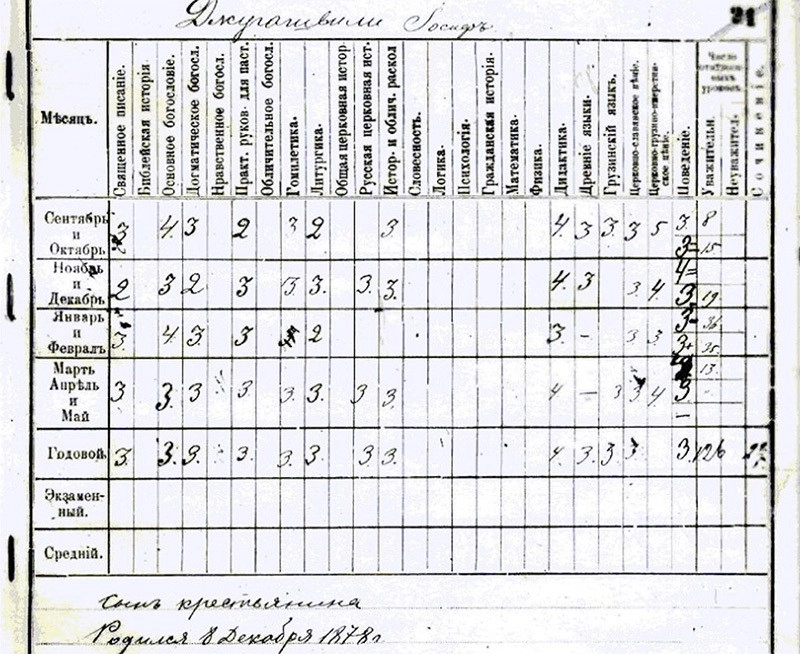 Джугашвили Іосифъ
21
Мѣсяцъ.
Священное писаніе.
Библейская исторія
Основное богословіе.
Догматическое богосл.
Нравственное богосл.
Практ. руков. для паст.
Обличительное богосл.
Гомилетика.
Литургика.
Общая церковная истор.
Русская церковная ист.
Истор- и облич. раскол
Словесность.
Логика.
Психологія.
Гражданская исторія.
Математика.
Физика.
Дидактика.
Древніе языки.
Грузинскій языкъ.
Церковно-славянское пѣніе.
Поведеніе.
Число
уроковъ.
Уважительн.
Неуважител.
Сочиненіе.
Сентябрь и Октябрь 3 4. 3 2 3 2 3 4. 3 3. 3 5 3. 8
3= 15
Ноябрь и Декабрь 2 3 2 3 3. 3. 3. 3. 4. 3 3. 4. 4=
3 19
Январь и Февраль 3. 4 3. 3 2 3. - 3 3 3- 36
3+ 35.
Мартъ Апрѣль и Май 3 3. 3 3. 3. 3. 3 3. 4 — 3 3 4 13.
3 -
—
Годовой. 3. 3. 3. 3. 3. 3. 3 3. 4. 3. 3 3 3. 126
Экзамен-
ный.
Средній.
сынъ крестьянина
Родился 8 Декабря 1878 г